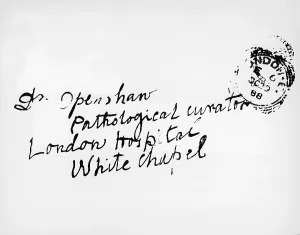 Dr. Openshaw
Pathological curator
London Hospital
White chapel
LONDON. E
OC
88